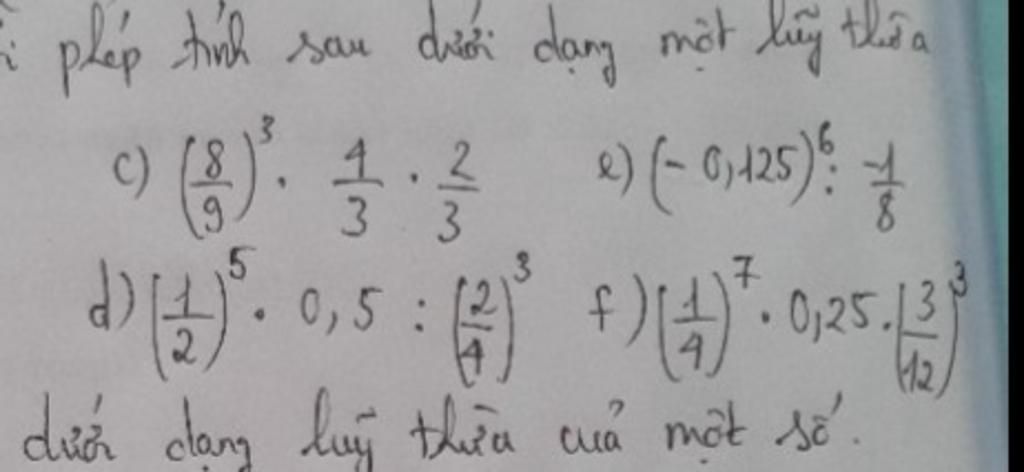 phép tính sau dưới dạng một luỹ thừa
c) (8/9)³ . 4/3 . 2/3 e) (- 0,125)⁶ : -1/8
d) (1/2)⁵ . 0,5 : (2/4)³ f) (1/4)⁷ . 0,25 . (3/12)³
dưới dạng luỹ thừa cuả một số.